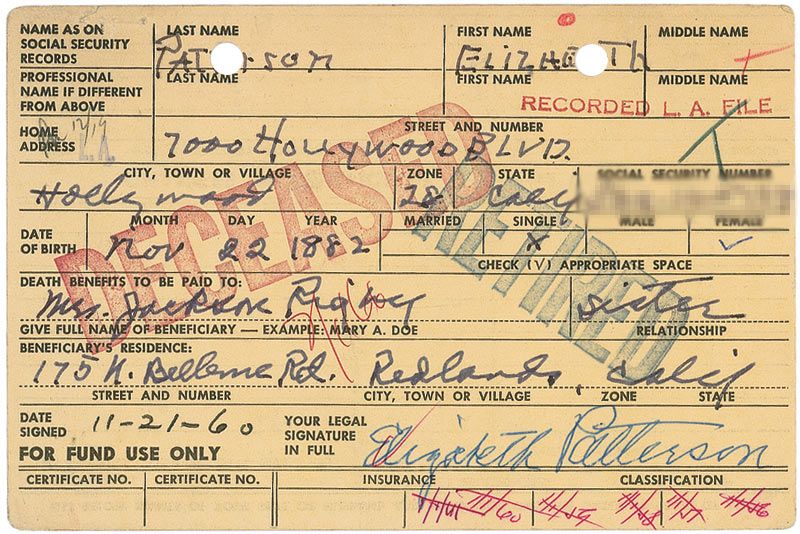 NAME AS ON SOCIAL SECURITY RECORDS
LAST NAME FIRST NAME MIDDLE NAME
PATTERSON ELIZABETH
PROFESSIONAL NAME IF DIFFERENT FROM ABOVE
LAST NAME FIRST NAME MIDDLE NAME
RECORDED L. A. FILE
HOME ADDRESS
12/19
L.A.
STREET AND NUMBER
7000 Hollywood BLVD.
CITY, TOWN OR VILLAGE ZONE STATE SOCIAL SECURITY NUMBER
Hollywood 28 Calif
MONTH DAY YEAR MARRIED SINGLE MALE FEMALE
DATE OF BIRTH Nov 22 1882 X ✓
CHECK (√) APPROPRIATE SPACE
DECEASED
RETIRED
DEATH BENEFITS TO BE PAID TO:
Mrs. Jackson Rigby sister
GIVE FULL NAME OF BENEFICIARY — EXAMPLE: MARY A. DOE RELATIONSHIP
BENEFICIARY'S RESIDENCE:
175 N. Bellevue Rd. Redlands, Calif
STREET AND NUMBER CITY, TOWN OR VILLAGE ZONE STATE
DATE SIGNED 11-21-60 YOUR LEGAL SIGNATURE IN FULL Elizabeth Patterson
FOR FUND USE ONLY
CERTIFICATE NO. CERTIFICATE NO. INSURANCE CLASSIFICATION
11/1/61 11/1/60 11/1/59 11/1/58 11/1/57 11/1/56